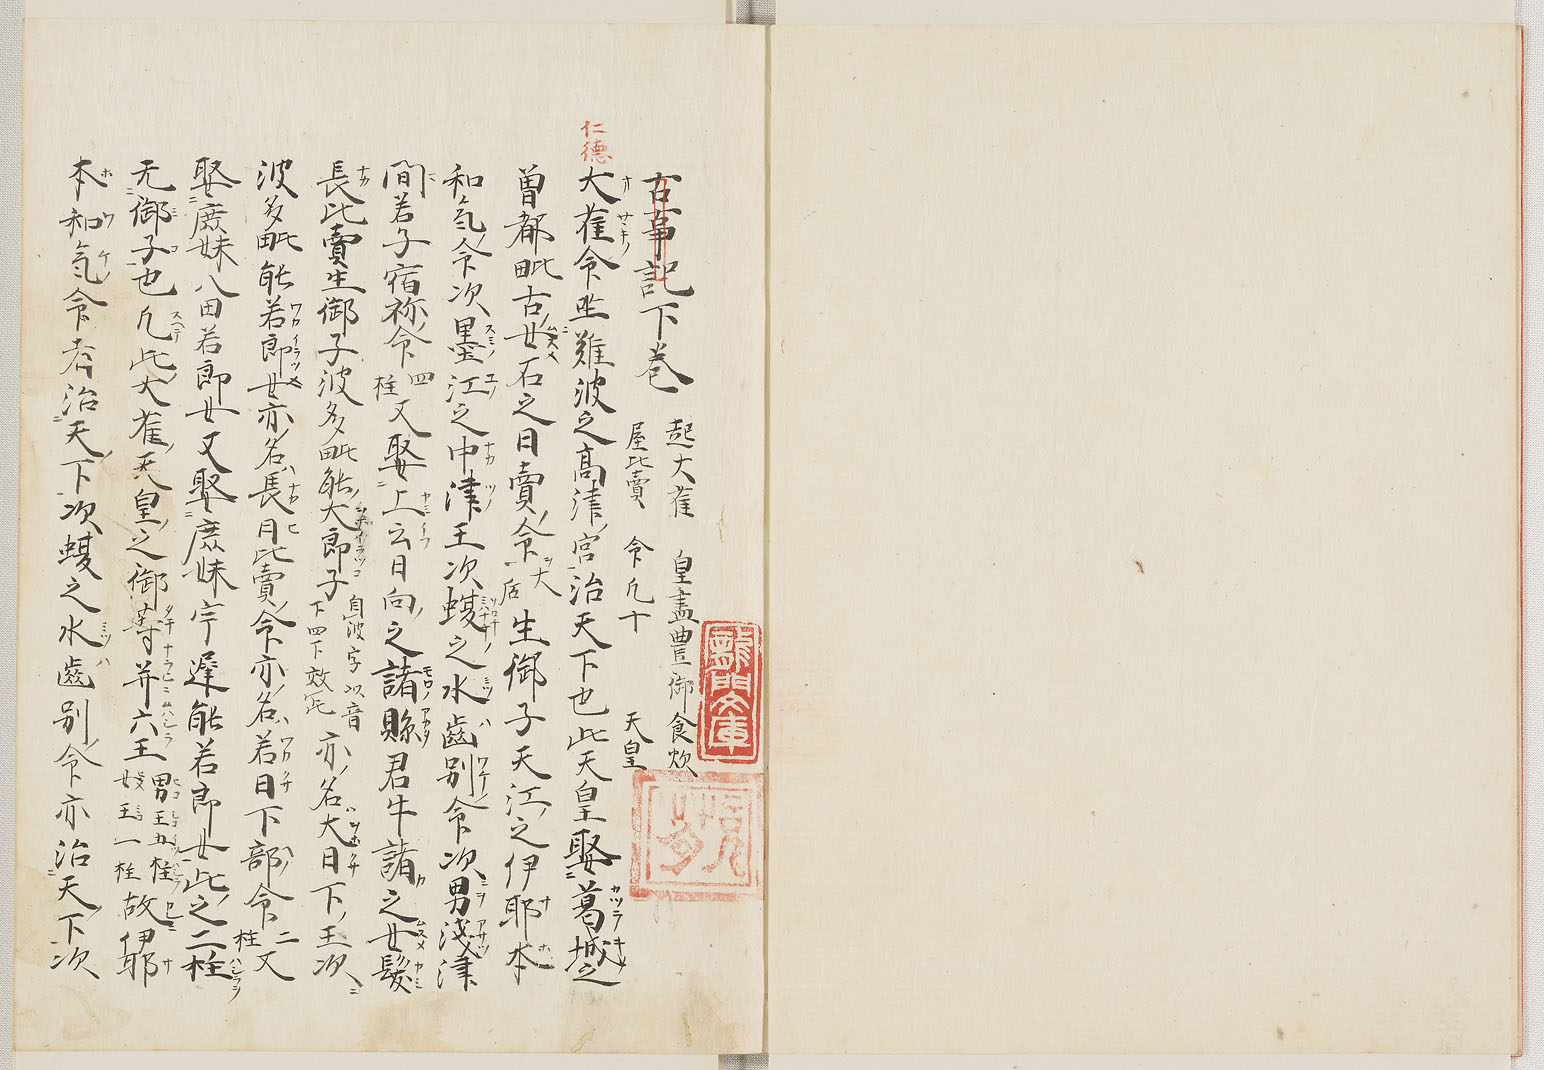 古事記下巻 起大雀 皇盡豊御食炊
屋比賣 命凡十 天皇
仁德
大雀命坐難波之高津宮治天下也此天皇娶葛城之
曽都毗古女石之日賣命大后生御子天江之伊耶本
和気命次墨江之中津王次蝮之水齒別命次男浅津
間若子宿祢命四柱又娶上云日向之諸縣君牛諸之女髪
長比賣生御子波多毗能大郎子自波字以音下四下效此亦名大日下王次
波多毗能若郎女亦名長日比賣命亦名若日下部命二柱又
娶庶妹八田若郎女又娶庶妹宇遅能若郎女此之二柱
无御子也凡此大雀天皇之御等并六王男王五柱女王一柱故伊耶
本和気命者治天下次蝮之水齒別命亦治天下次
龍門文庫